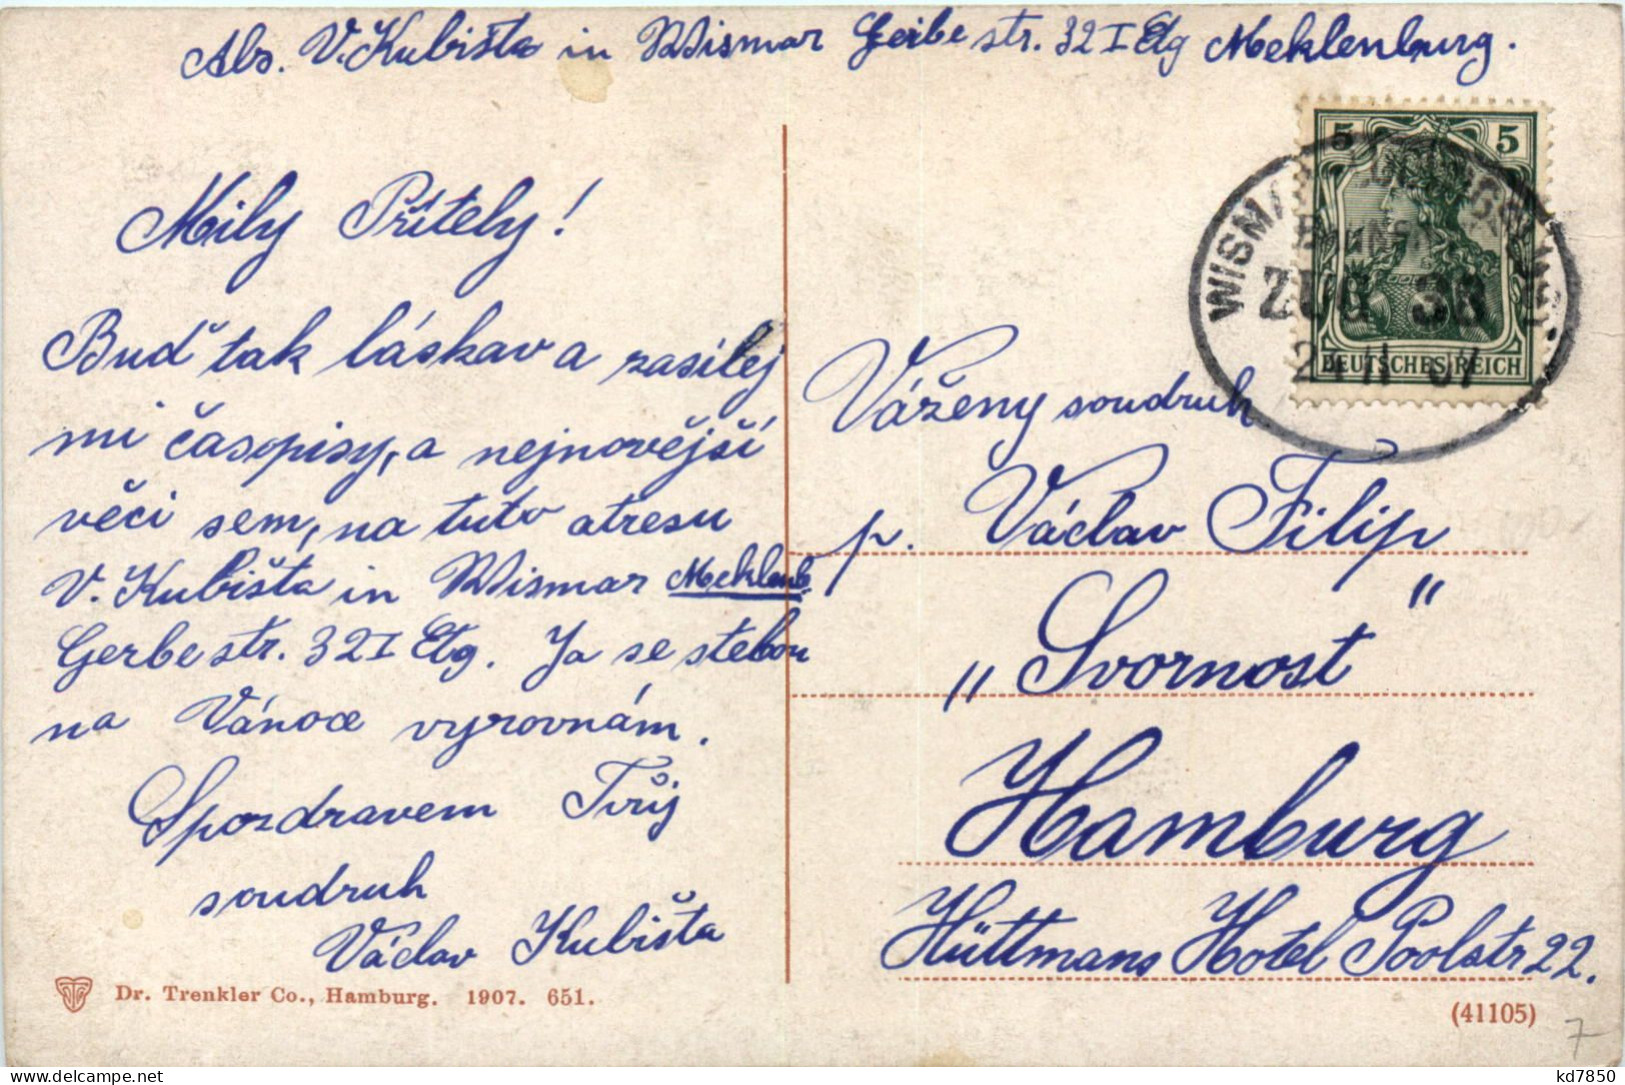 Abs. V. Kubišta in Wismar Gerbe str. 32 I Etg Meklenburg.
5 5
WISMAR
ZUG 38
DEUTSCHES REICH
Milý Přítely!
Buď tak láskav a zasilej
mi časopisy, a nejnovější
věci sem, na tuto atresu
V. Kubišta in Wismar Meklenb.
Gerbe str. 32 I Etg. Ja se stebou
na Vánoce vyrovnám.
Spozdravem Tvůj
soudruh
Václav Kubišta
Vážený soudruh
p. Václav Filip
„Svornost“
Hamburg
Hüttmans Hotel Poolstr 22.
Dr. Trenkler Co., Hamburg. 1907. 651.
(41105)
7
kd7850